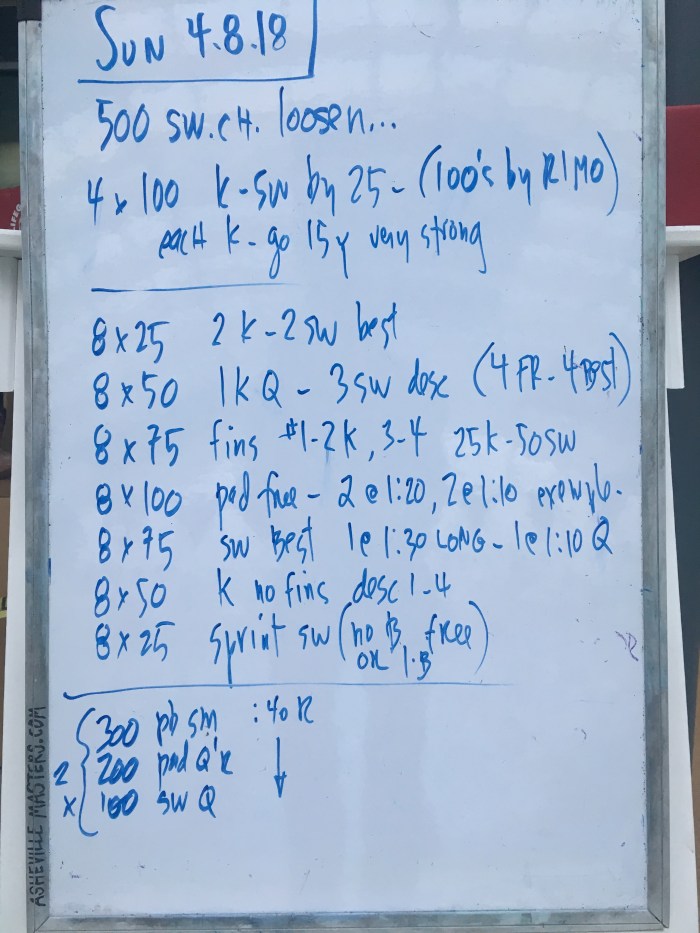 SUN 4.8.18
500 SW.CH. loosen...
4 x 100 K-SW by 25 - (100's by RIMO)
each K - go 15y very strong
8 x 25 2 K - 2 SW best
8 x 50 1K Q - 3 SW desc (4 FR - 4 Best)
8 x 75 fins #1-2 K, 3-4 25K-50SW
8 x 100 pad free - 2 @ 1:20, 2 @ 1:10
8 x 75 SW Best 1@ 1:30 LONG - 1@ 1:10 Q
8 x 50 K no fins desc 1-4
8 x 25 sprint SW (no B free)
OR 1·B
300 pb sm :40 R
2 200 pad Q'R
x 100 SW Q
ASHEVILLE MASTERS.COM